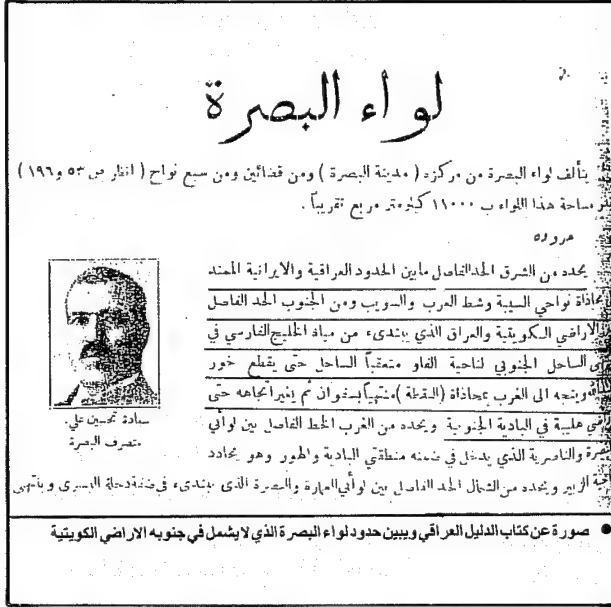 لواء البصرة
يتألف لواء البصرة من مركزه ( مدينة البصرة ) ومن قضائين ومن سبع نواح ( انظر ص ٥٣ و ١٩٦ )
مساحة هذا اللواء ب ١١٠٠٠ كيلومتر مربع تقريباً .
حدوده
يحدده من الشرق الحد الفاصل مابين الحدود العراقية والايرانية الممتد
بمحاذاة نواحي السيبة وشط العرب والسويب ومن الجنوب الحد الفاصل
الاراضي الكويتية والعراق الذي يبتدىء من مياه الخليج الفارسي في
الساحل الجنوبي لناحية الفاو متعقباً الساحل حتى يقطع خور
ويتجه الى الغرب بمحاذاة (النقطة )منتهياً بسفوان ثم يغير اتجاهه حتى
هليبة في البادية الجنوبية ويحدده من الغرب الخط الفاصل بين لوائي
البصرة والناصرية الذي يدخل في ضمنه منطقتي البادية والهور وهو يحادد
الزبير ويحدده من الشمال الحد الفاصل بين لوائي العمارة والبصرة الذي يبتدىء في ضفة دجلة اليسرى وينتهي
سعادة تحسين علي.
متصرف البصرة
● صورة عن كتاب الدليل العراقي ويبين حدود لواء البصرة الذي لا يشمل في جنوبه الاراضي الكويتية